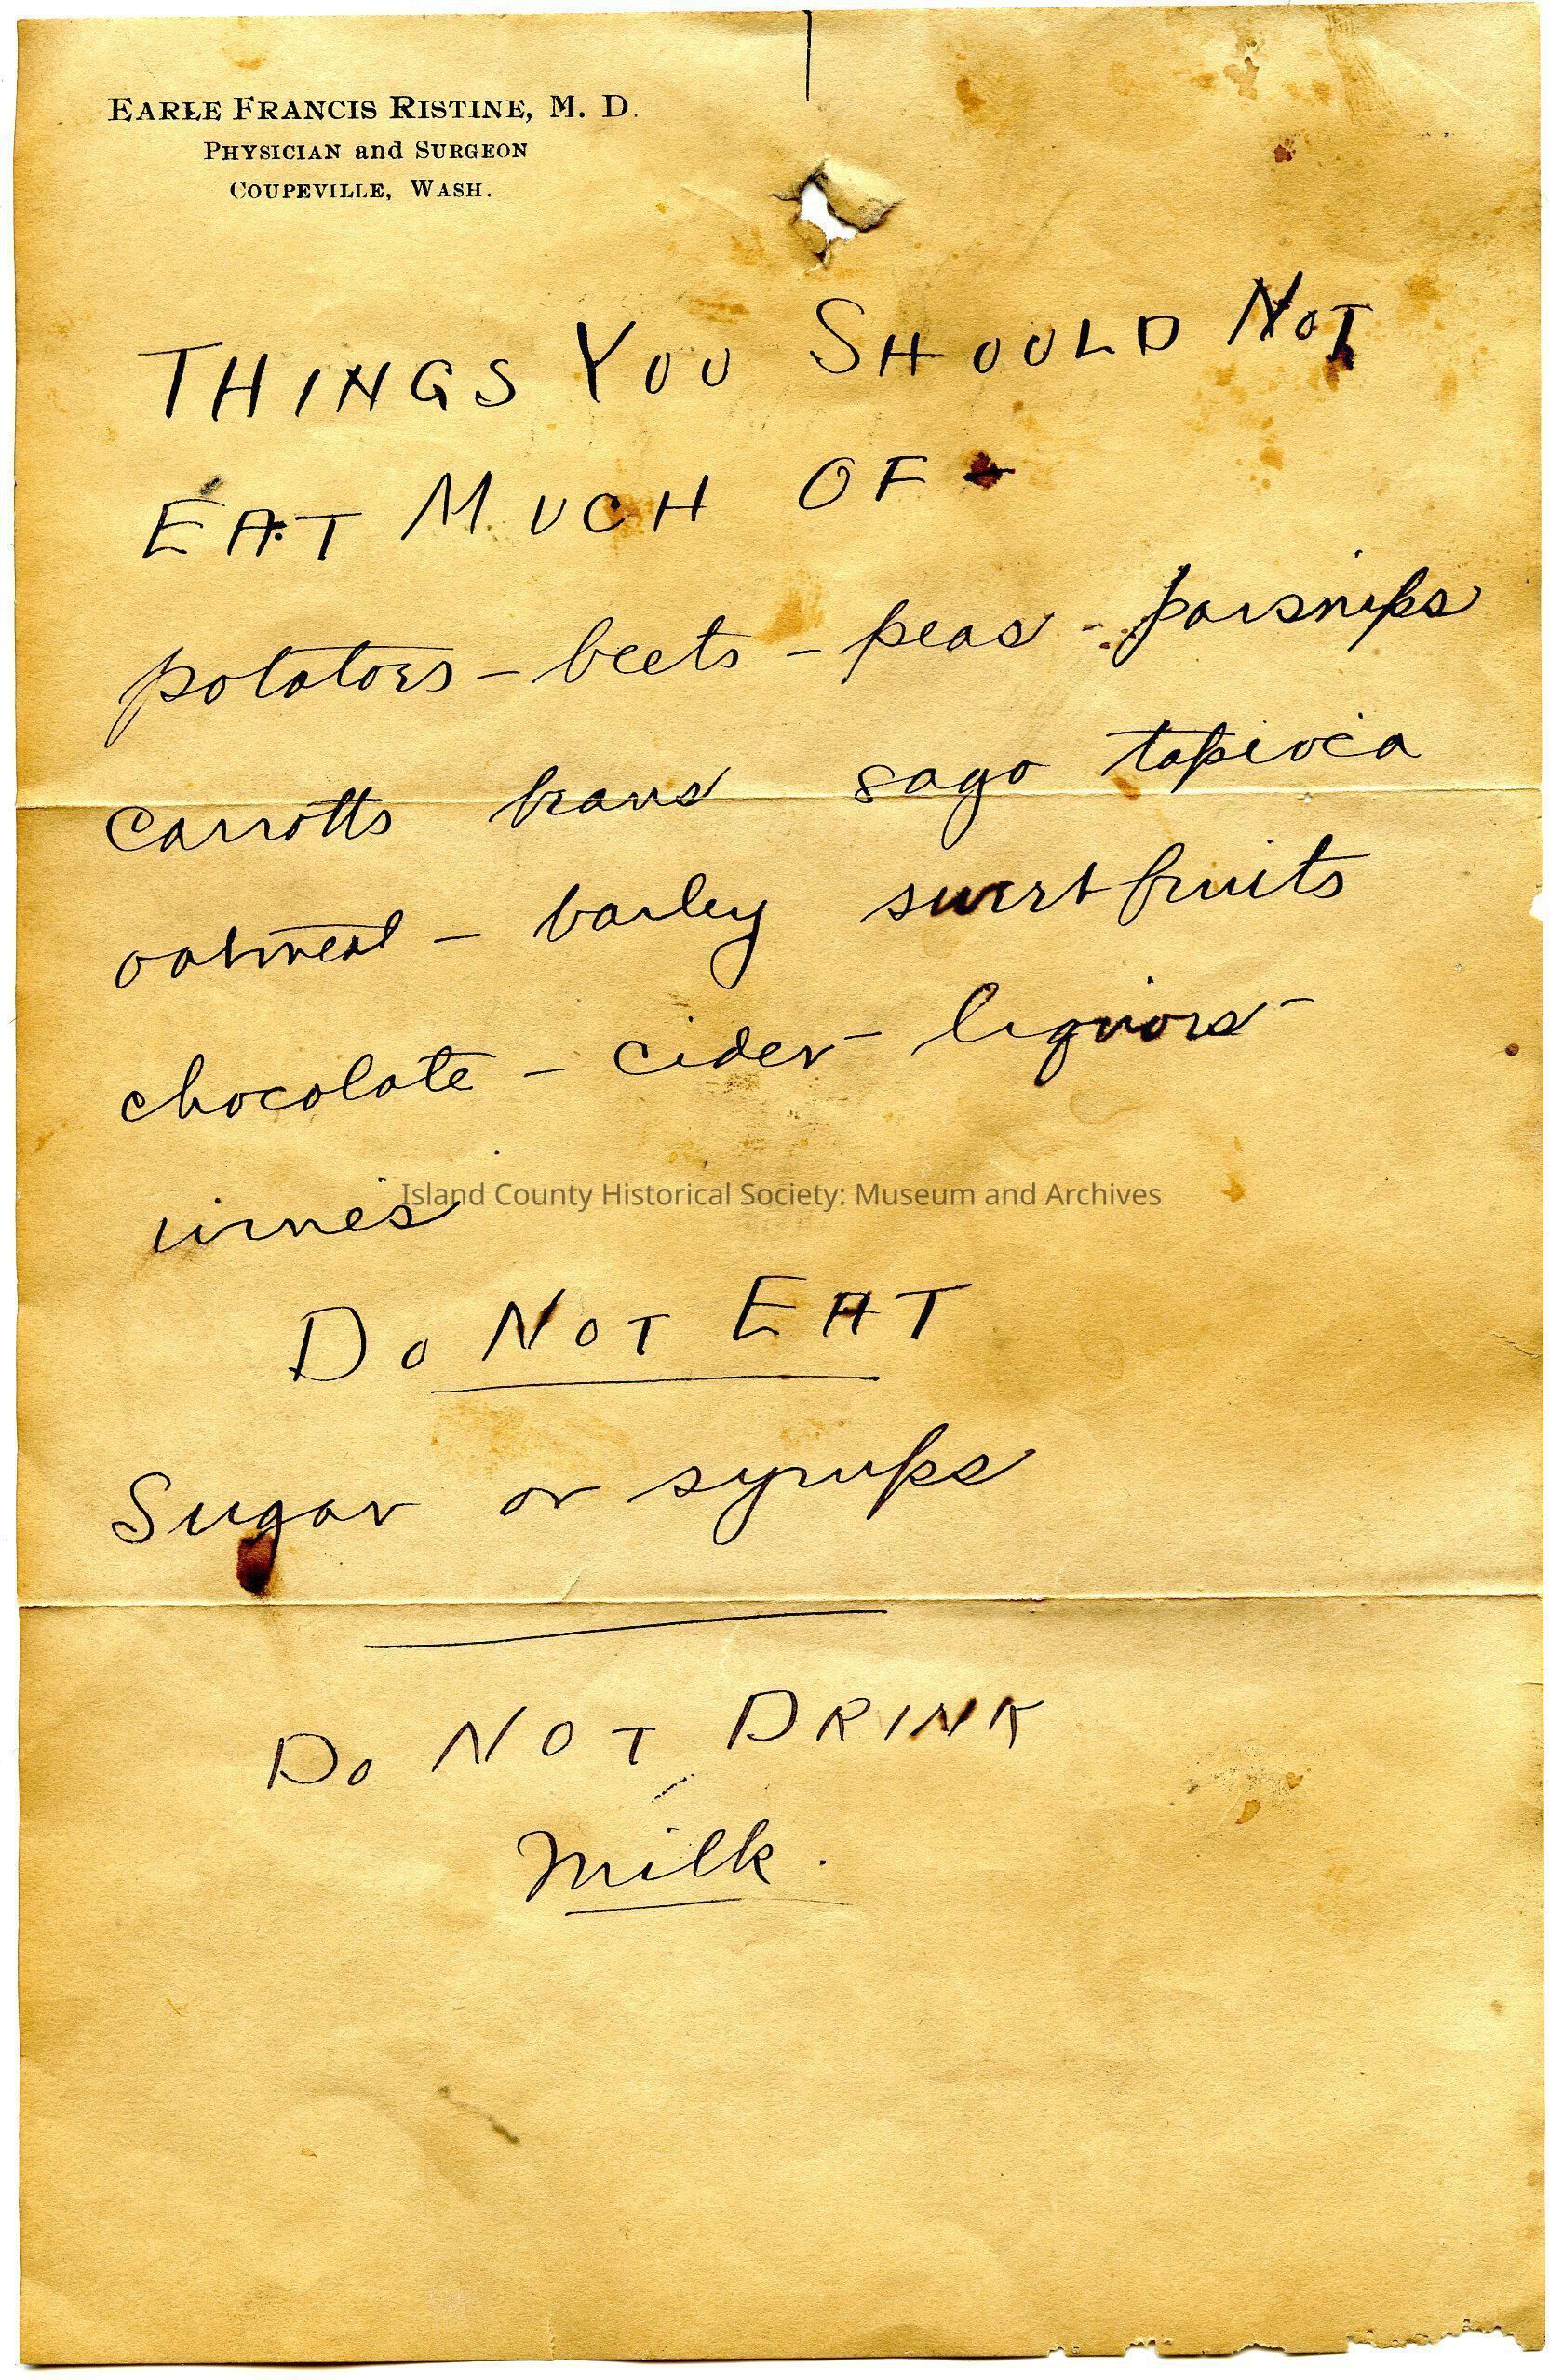 EARLE FRANCIS RISTINE, M. D.
PHYSICIAN and SURGEON
COUPEVILLE, WASH.
THINGS YOU SHOULD NOT
EAT MUCH OF -
potatoes - beets - peas - parsnips
carrotts beans sago tapioca
oatmeal - barley sweet fruits
chocolate - cider - liquors -
wines
Island County Historical Society: Museum and Archives
DO NOT EAT
Sugar or syrups
DO NOT DRINK
Milk.